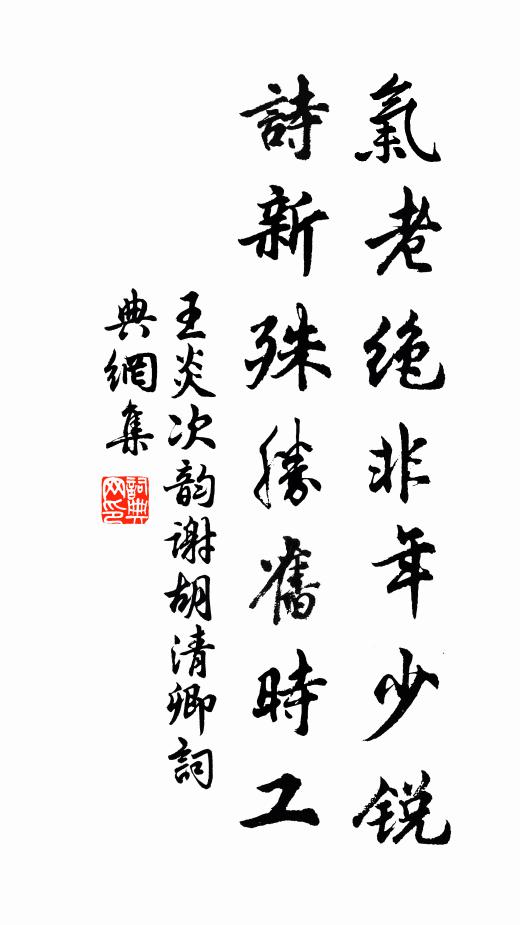 氣老絶非年少銳
詩新殊勝舊時工
王炎次韵謝胡清卿詞
典網集
詞典網印